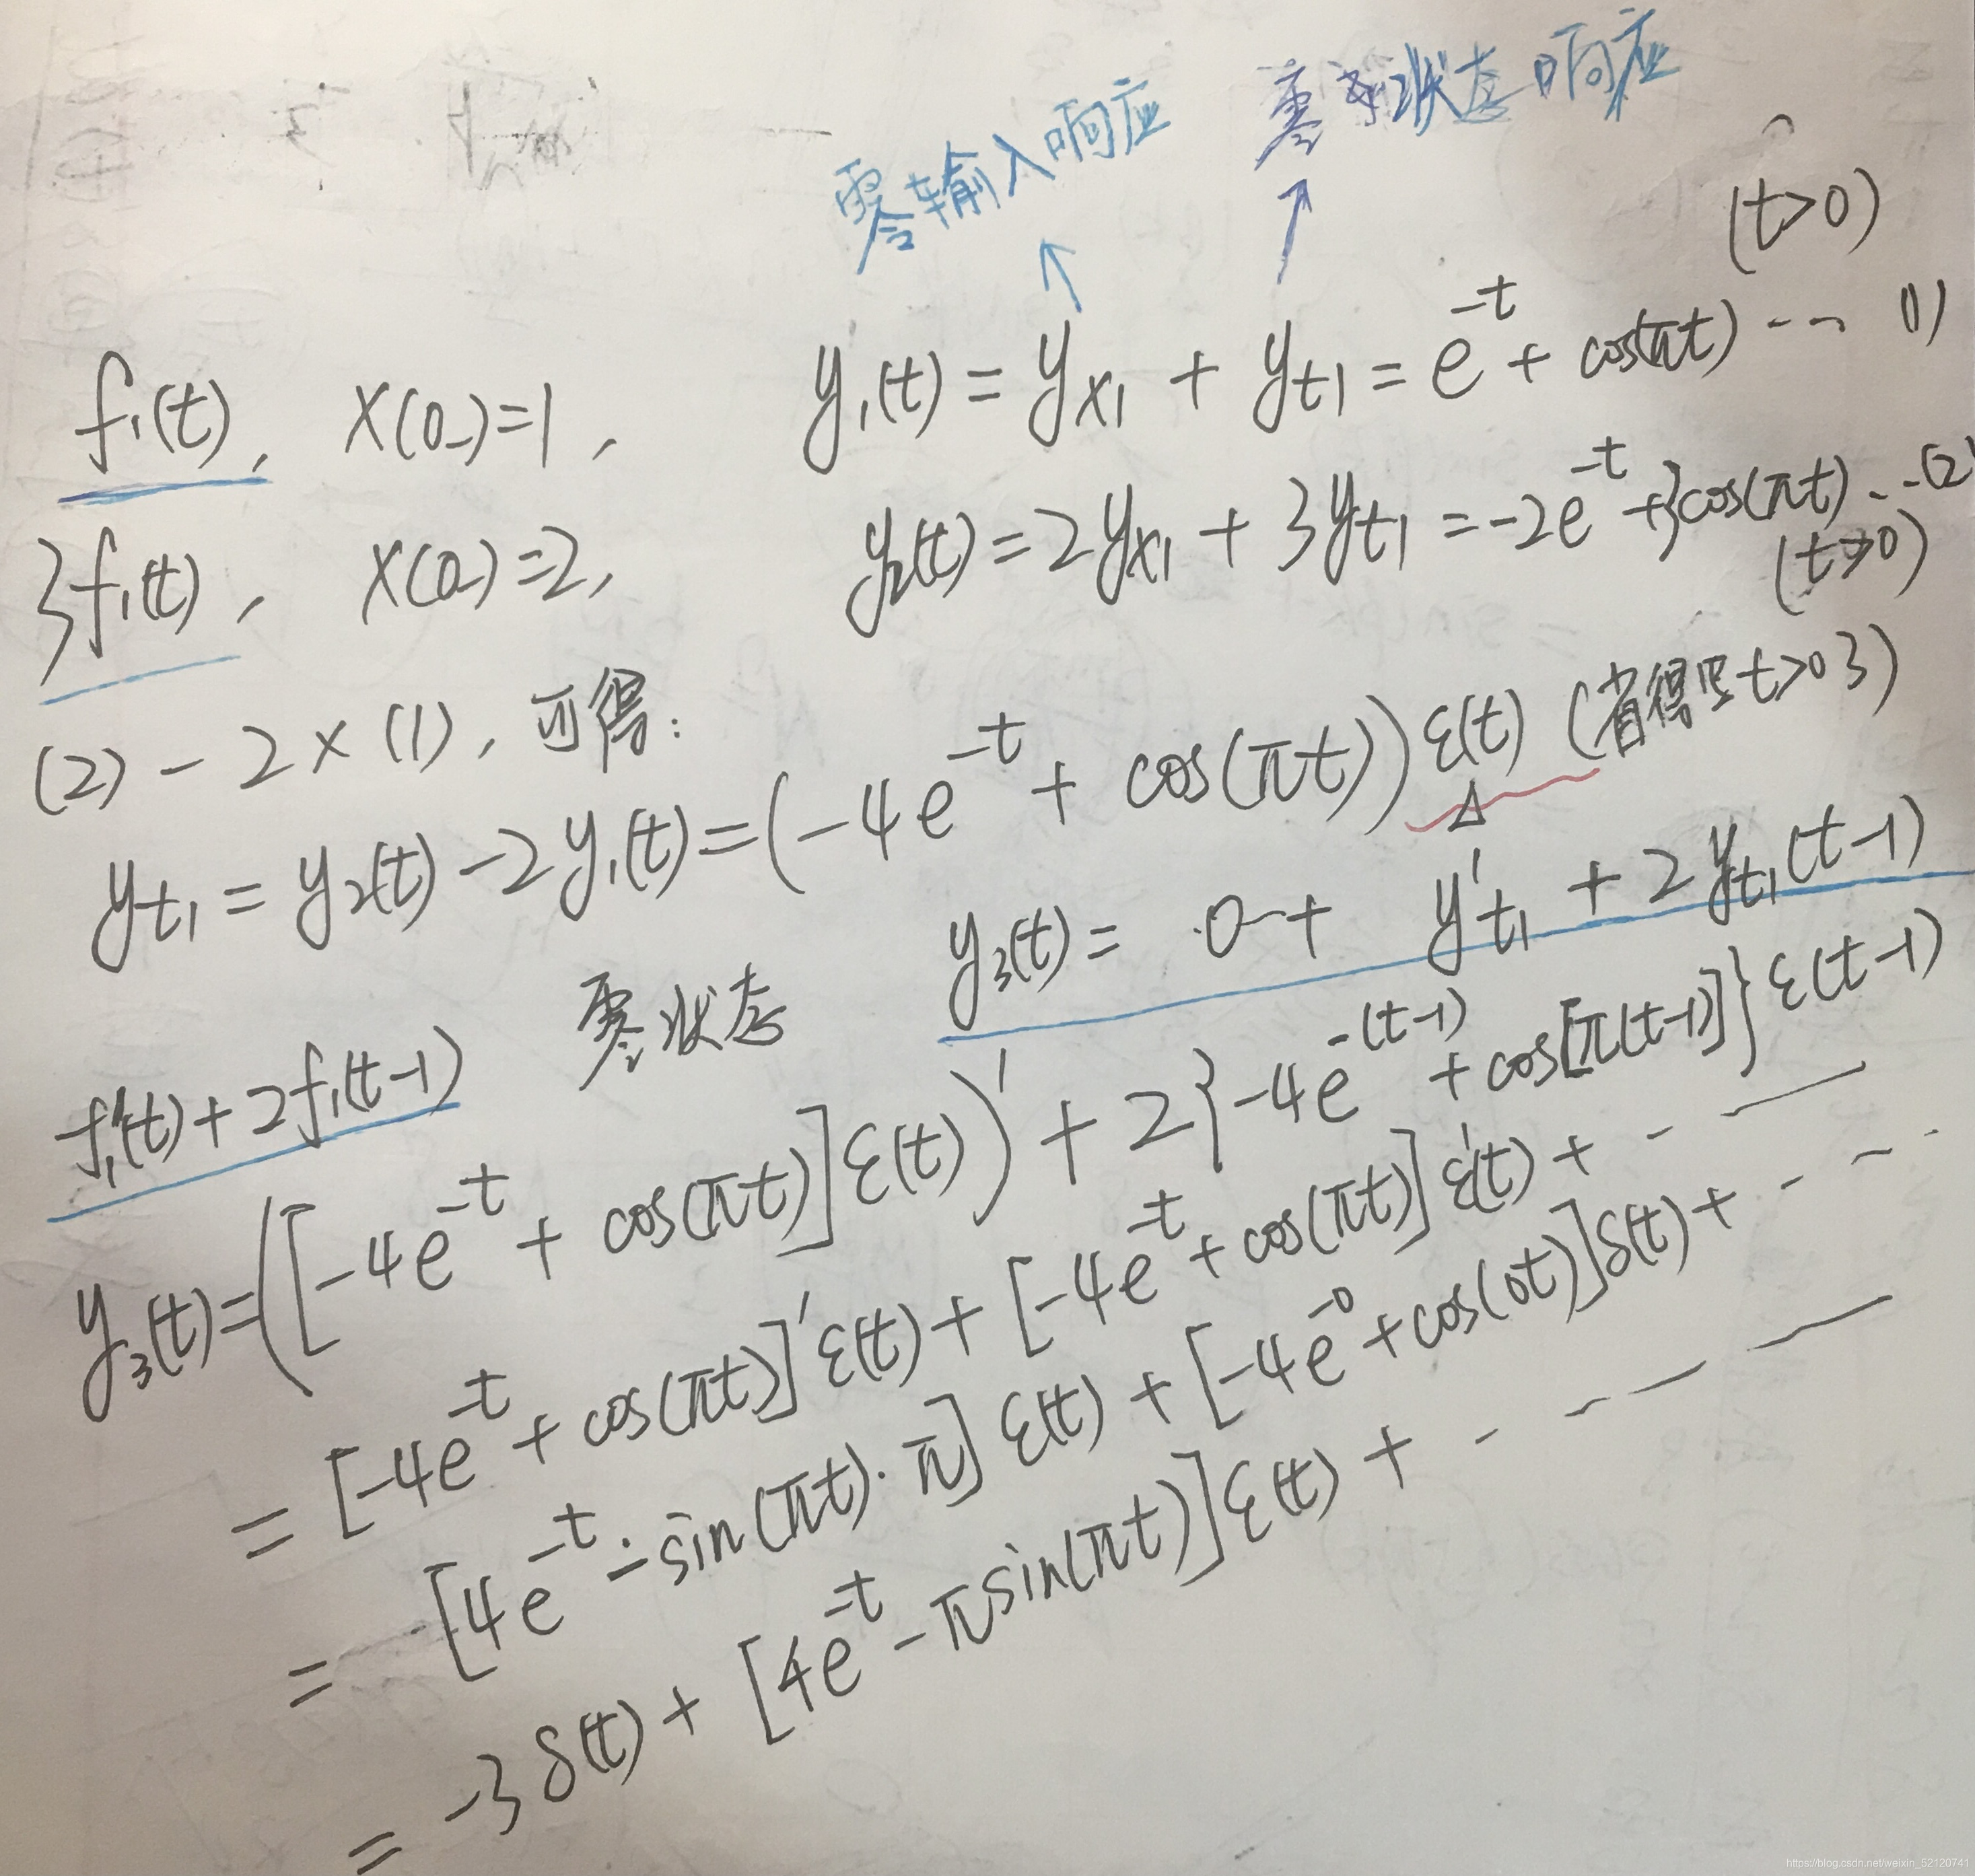 零输入响应 零状态响应
(t>0)
f₁(t), x(0₋)=1, y₁(t) = yx₁ + yt₁ = e^{-t} + cos(πt) --- (1)
3f₁(t), x(0₋)=2, y₂(t) = 2yx₁ + 3yt₁ = -2e^{-t} + 3cos(πt) --- (2)
(t>0)
(2) - 2×(1), 可得:
yt₁ = y₂(t) - 2y₁(t) = (-4e^{-t} + cos(πt)) ε(t) (省得写t>0了)
△
f₁'(t) + 2f₁(t-1) 零状态 y₃(t) = 0 + y't₁ + 2yt₁(t-1)
y₃(t) = ([-4e^{-t} + cos(πt)] ε(t))' + 2{-4e^{-(t-1)} + cos[π(t-1)]} ε(t-1)
= [-4e^{-t} + cos(πt)]' ε(t) + [-4e^{-t} + cos(πt)] ε'(t) + - —
= [4e^{-t} - sin(πt)·π] ε(t) + [-4e^{-0} + cos(0t)] δ(t) + - - - -
= -3δ(t) + [4e^{-t} - πsin(πt)] ε(t) + - - — —
https://blog.csdn.net/weixin_52120741